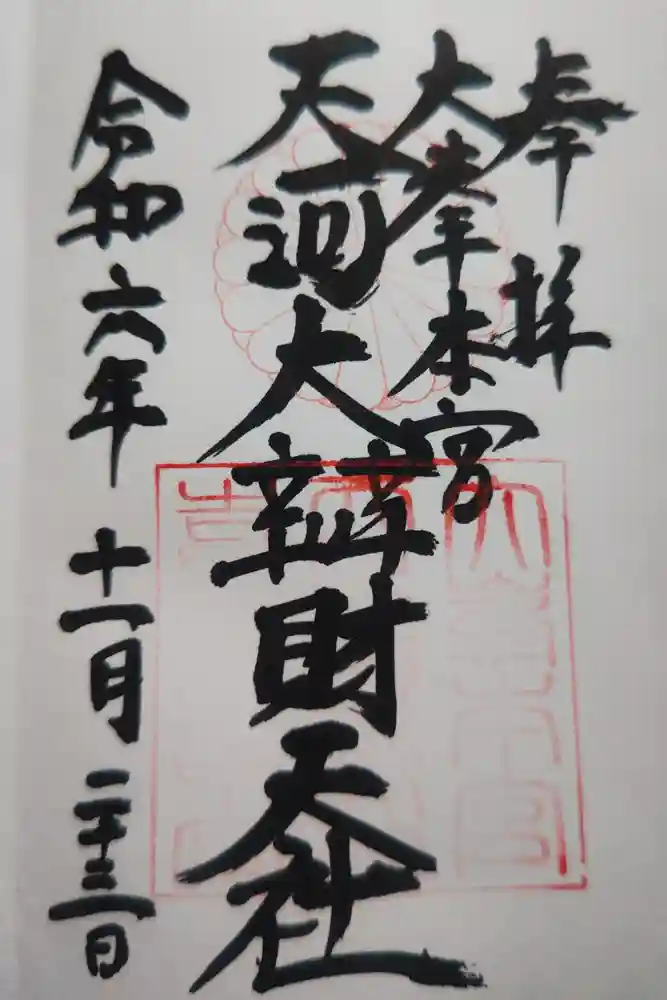 奉拝
大峯本宮
天河大辨財天社
令和六年十一月二十三日